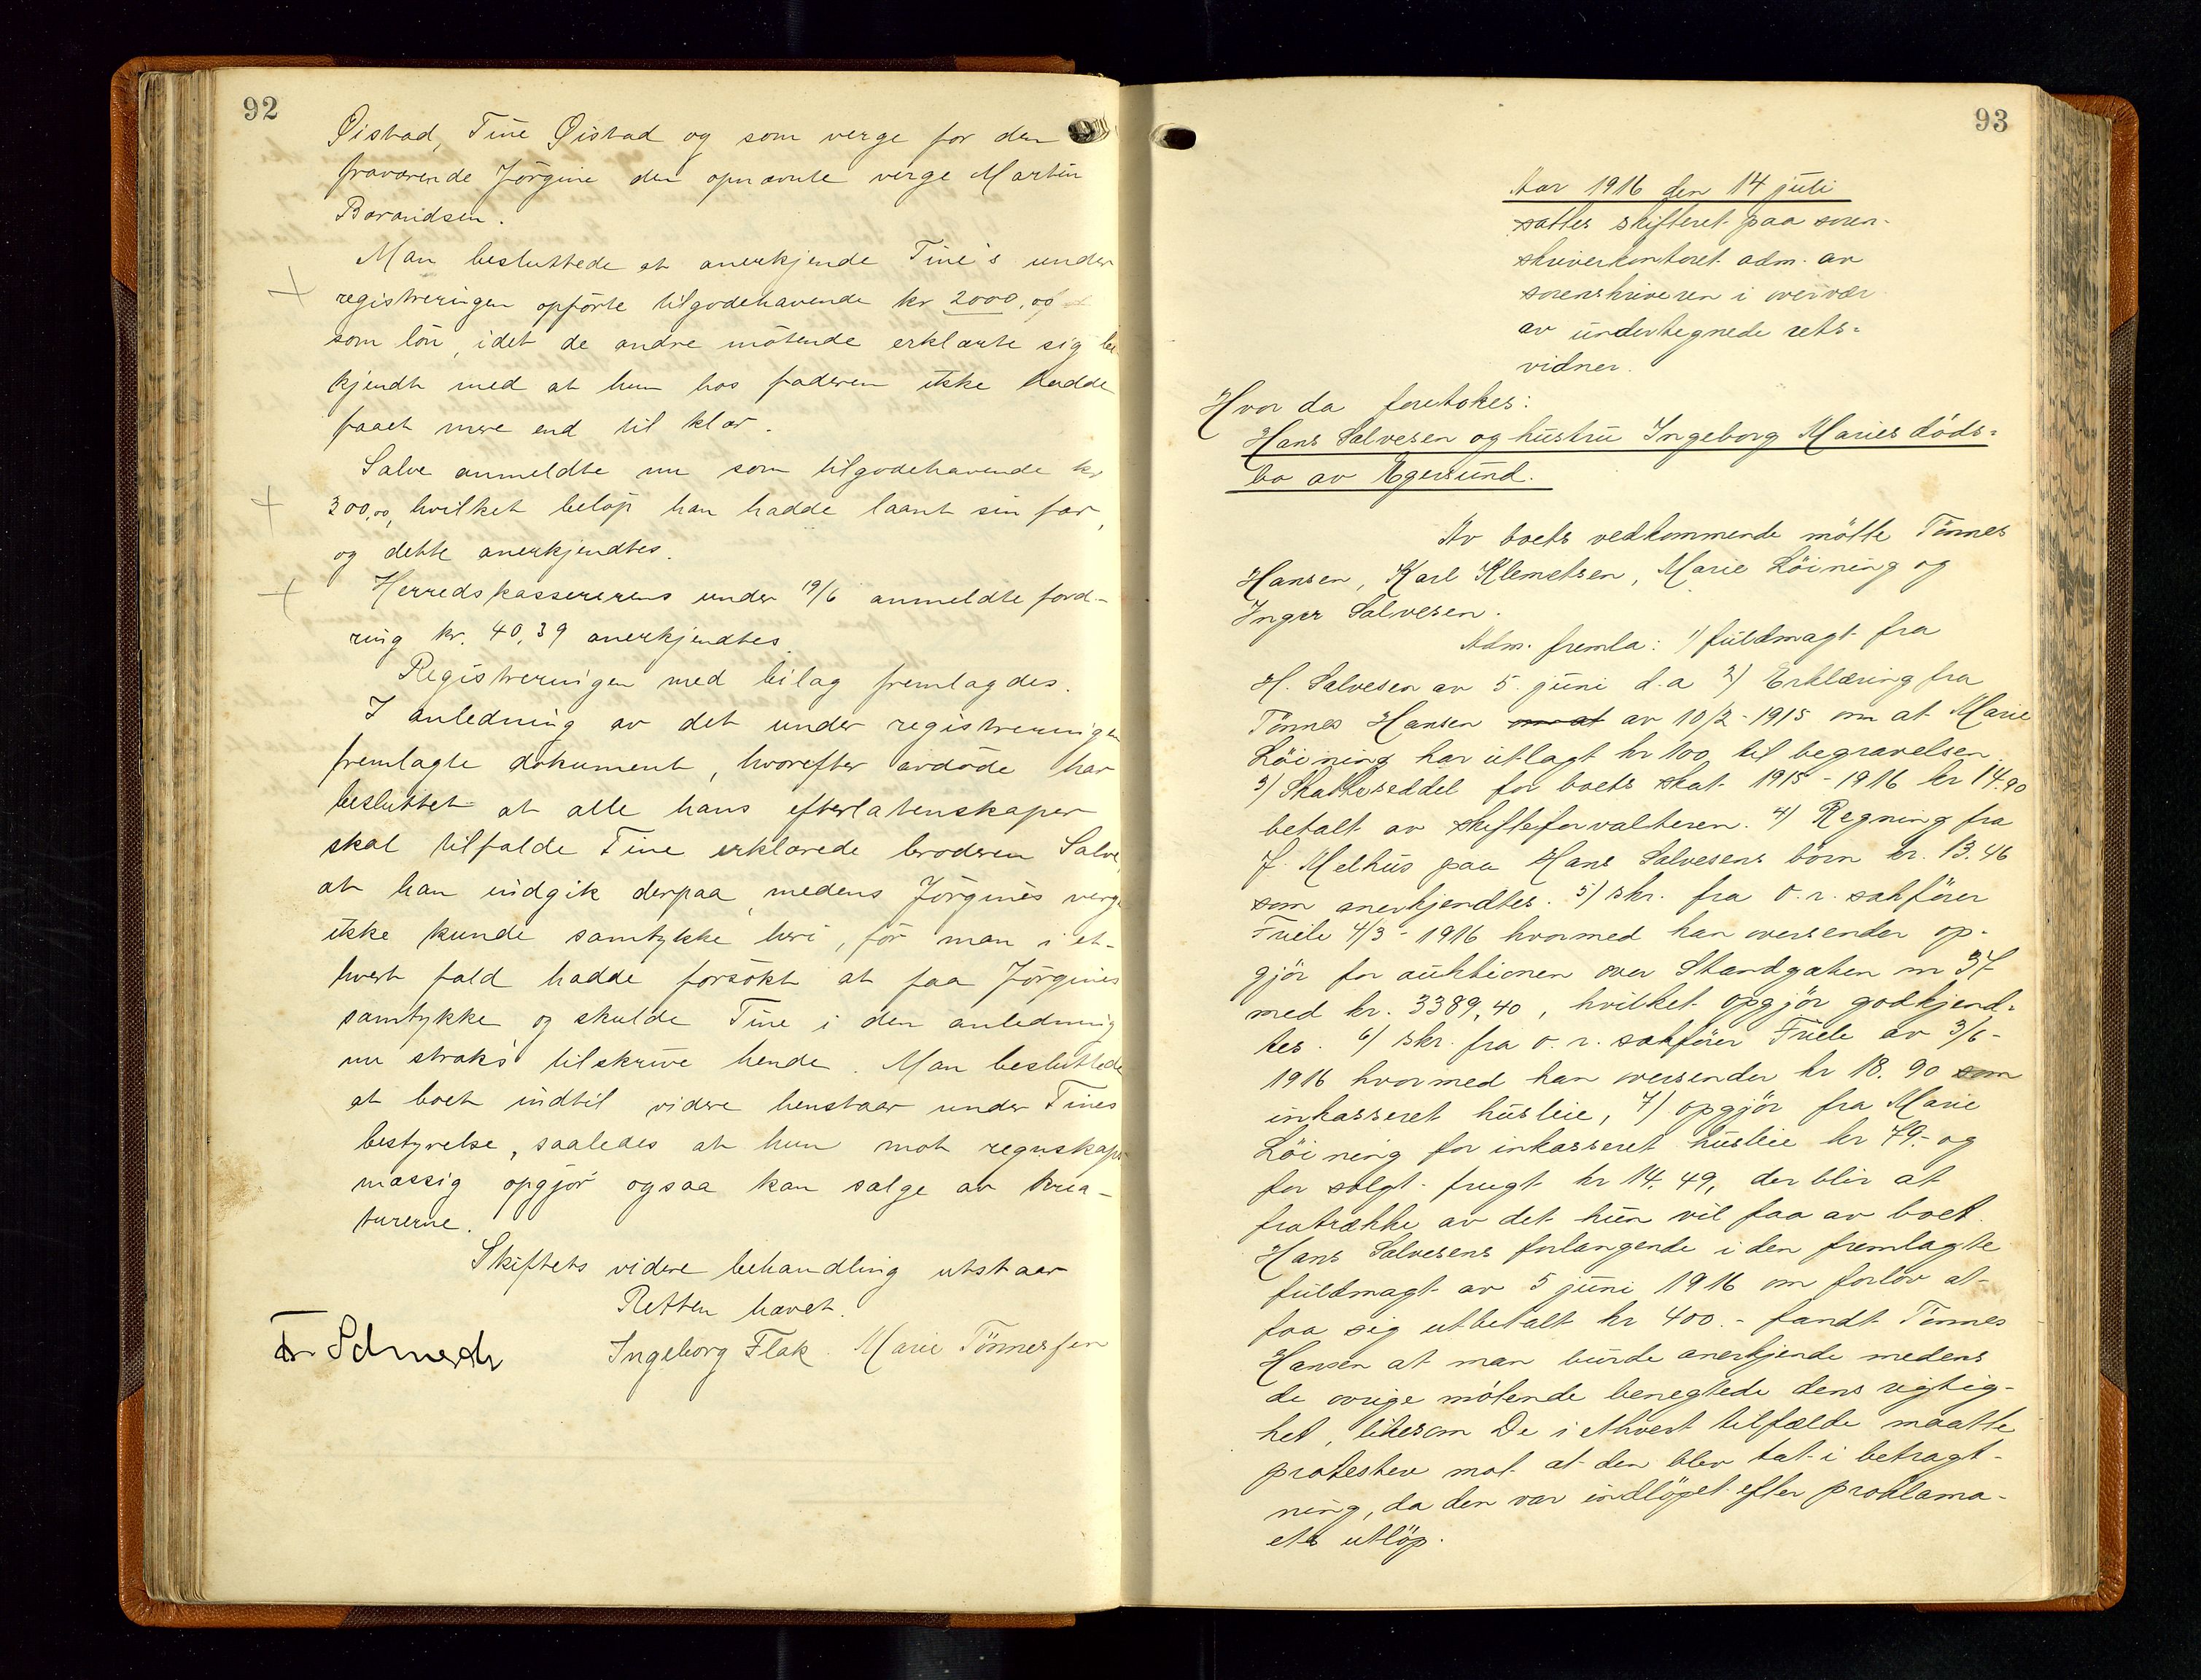 92
Øistad, Tine Øistad og som verge for den
fraværende Jörgine den opnævnte verge Martin
Barandsen.
Man besluttede at anerkjende Tine's under
registreringen opförte tilgodehavende kr 2000,00
som lön, idet de andre mötende erklærte sig be
kjendt med at hun hos faderen ikke hadde
faaet mere end til klær.
Salve anmeldte nu som tilgodehavende kr
300,00, hvilket belöp han hadde laant sin far,
og dette anerkjendtes.
Herredskassererens under 19/6 anmeldte ford-
ring kr. 40,39 anerkjendtes.
Registreringen med bilag fremlagdes.
I anledning av det under registreringen
fremlagte dokument, hvorefter avdöde har
besluttet at alle hans efterlatenskaper
skal tilfalde Tine erklærede broderen Salve,
at han indgik derpaa, medens Jörgines verge
ikke kunde samtykke heri, för man i et-
hvert fald hadde forsökt at faa Jörgines
samtykke og skulde Tine i den anledning
nu straks tilskrive hende. Man besluttede
at boet indtil videre henstaar under Tines
bestyrelse, saaledes at hun mot regnskaps
mæssig opgjör ogsaa kan sælge av krea-
turerne.
Skiftets videre behandling utstaar
Retten hævet.
Ingeborg Flak. Marie Tönnessen
93
Aar 1916 den 14 juli
sattes skifteret paa soren-
skriverkontoret adm. av
sorenskriveren i overvær
av undertegnede rets-
vidner.
Hvor da foretokes:
Hans Salvesen og hustru Ingeborg Maries döds-
bo av Egersund.
Av boets vedkommende mötte Tönnes
Hansen, Karl Klemetsen, Marie Löining og
Inger Salvesen.
Adm. fremla: 1) fuldmagt fra
H. Salvesen av 5. juni d.a 2) Erklæring fra
Tönnes Hansen om at av 10/2-1915 om at Marie
Löining har utlagt kr 100 til begravelsen
3) Skatteseddel for boets skat 1915-1916 kr 14.90
betalt av skifteforvalteren. 4) Regning fra
J. Melhus paa Hans Salvesens börn kr. 13.46
som anerkjendtes. 5) skr. fra o.r. sakförer
Friele 4/3-1916 hvormed han oversender op-
gjör for auktionen over Standgaten nr 37
med kr. 3389,40, hvilket opgjör godkjend-
tes. 6) skr. fra o.r. sakförer Friele av 3/6-
1916 hvormed han oversender kr 18.90 som
inkasseret husleie, 7) opgjör fra Marie
Löining for inkasseret husleie kr 79.- og
for solgt frugt kr 14.49, der blir at
fratrække av det hun vil faa av boet.
Hans Salvesens forlangende i den fremlagte
fuldmagt av 5 juni 1916 om forlov at
faa sig utbetalt kr 400.- fandt Tönnes
Hansen at man burde anerkjende medens
de övrige mötende benegtede dens rigtig-
het, likesom De i ethvert tilfælde maatte
protestere mot at den blev tat i betragt-
ning, da den var indlöpet efter proklama-
ets utlöp.